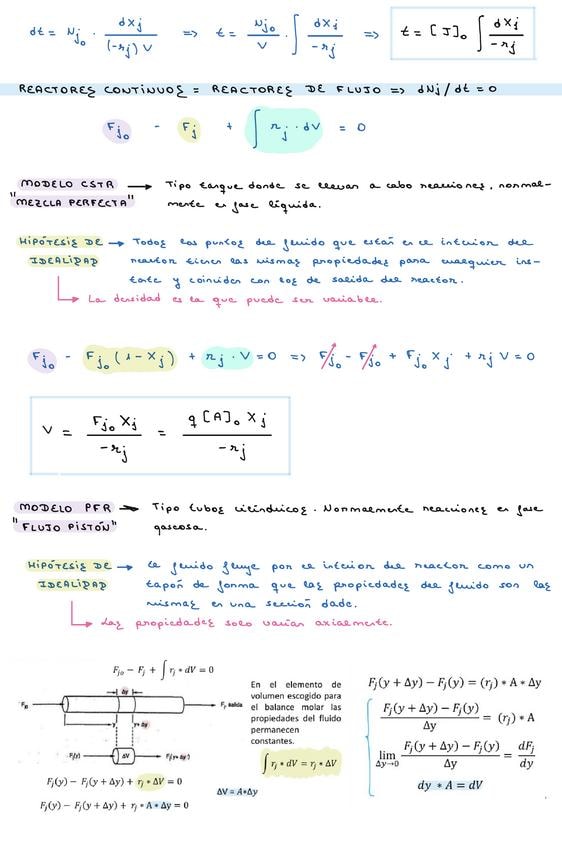 dt = Nj₀ · dXj / (-rj) V => t = Nj₀ / V · ∫ dXj / -rj => t = [J]₀ ∫ dXj / -rj
REACTORES CONTINUOS = REACTORES DE FLUJO => dNj/dt = 0
Fj₀ - Fj + ∫ rj · dV = 0
MODELO CSTR → Tipo tanque donde se llevan a cabo reacciones, normal-
"MEZCLA PERFECTA" mente en fase líquida.
HIPÓTESIS DE → Todos los puntos del fluido que están en el interior del
IDEALIDAD reactor tienen las mismas propiedades para cualquier ins-
tante y coinciden con los de salida del reactor.
La densidad es la que puede ser variable.
Fj₀ - Fj₀ (1 - Xj) + rj · V = 0 => Fj₀ - Fj₀ + Fj₀ Xj + rj V = 0
V = Fj₀ Xj / -rj = q [A]₀ Xj / -rj
MODELO PFR → Tipo tubos cilíndricos. Normalmente reacciones en fase
"FLUJO PISTÓN" gaseosa.
HIPÓTESIS DE → El fluido fluye por el interior del reactor como un
IDEALIDAD tapón de forma que las propiedades del fluido son las
mismas en una sección dada.
Las propiedades solo varían axialmente.
Fj₀ − Fj + ∫ rj * dV = 0
Δy
Fj₀
Fj salida
y y+Δy
Fj(y) ΔV Fj(y+Δy)
Fj(y) − Fj(y + Δy) + rj * ΔV = 0
Fj(y) − Fj(y + Δy) + rj * A * Δy = 0
En el elemento de
volumen escogido para
el balance molar las
propiedades del fluido
permanecen
constantes.
∫ rj * dV = rj * ΔV
ΔV = A*Δy
Fj(y + Δy) − Fj(y) = (rj) * A * Δy
Fj(y + Δy) − Fj(y) / Δy = (rj) * A
lim Δy→0 Fj(y + Δy) − Fj(y) / Δy = dFj / dy
dy * A = dV